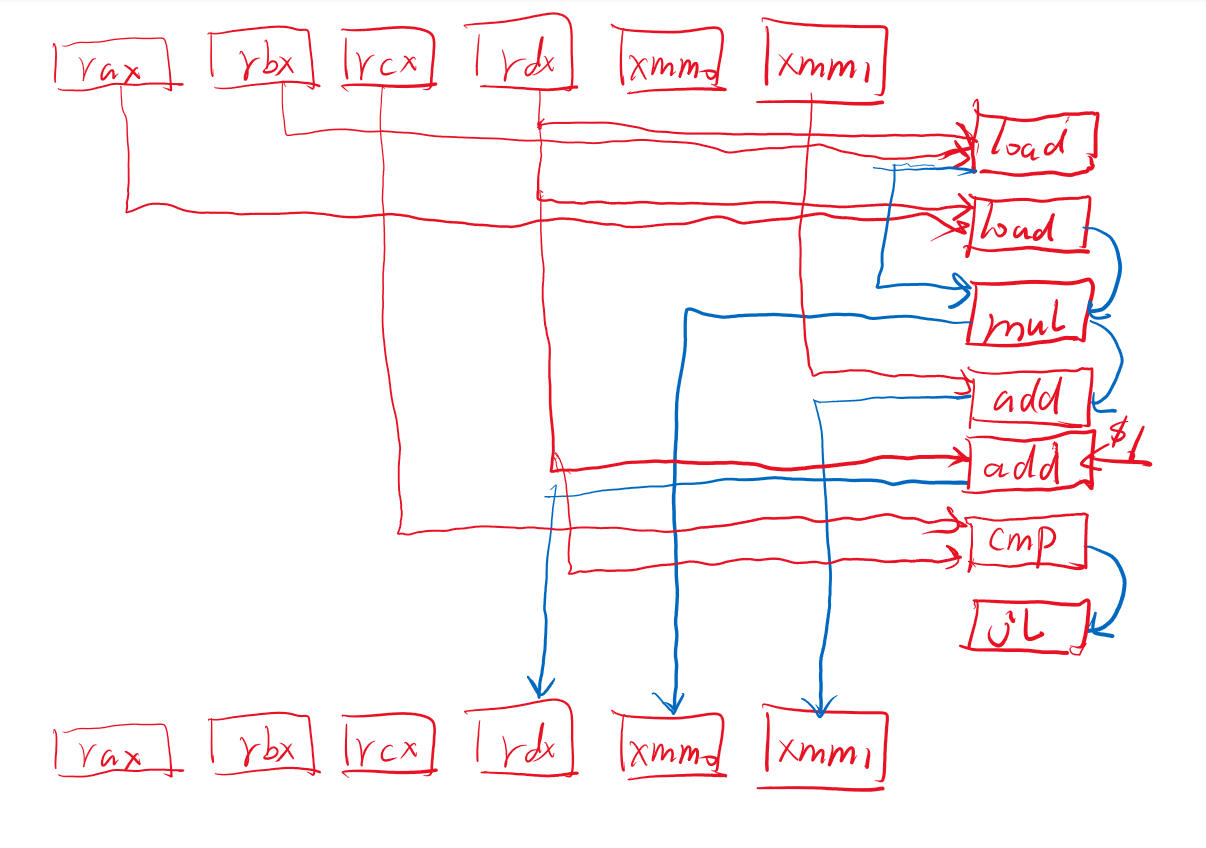 rax rbx rcx rdx xmm0 xmm1
load
load
mul
add
add $1
cmp
jL
rax rbx rcx rdx xmm0 xmm1